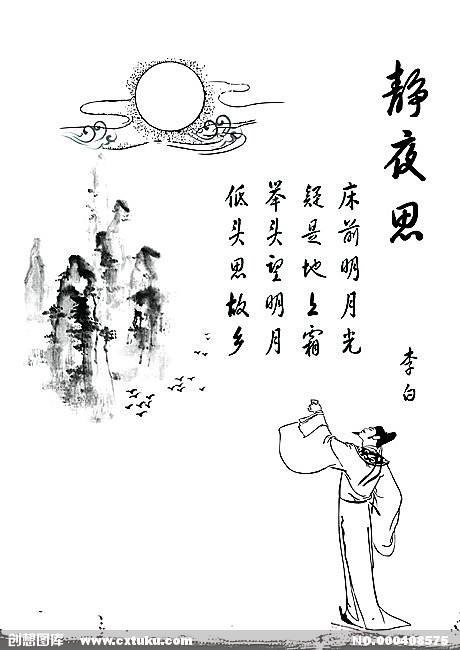 静夜思
床前明月光
疑是地上霜
举头望明月
低头思故乡
李白
创想图库 www.cxtuku.com NO.000408575